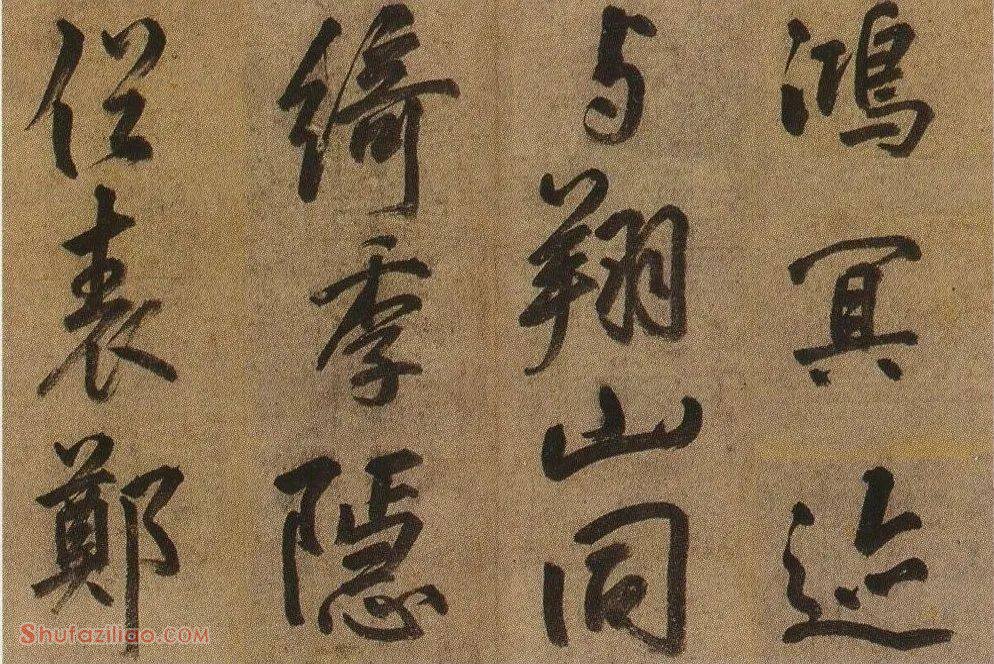 鴻冥迹
与翔山同
綺季隱
但表鄭
Shufaziliao.COM